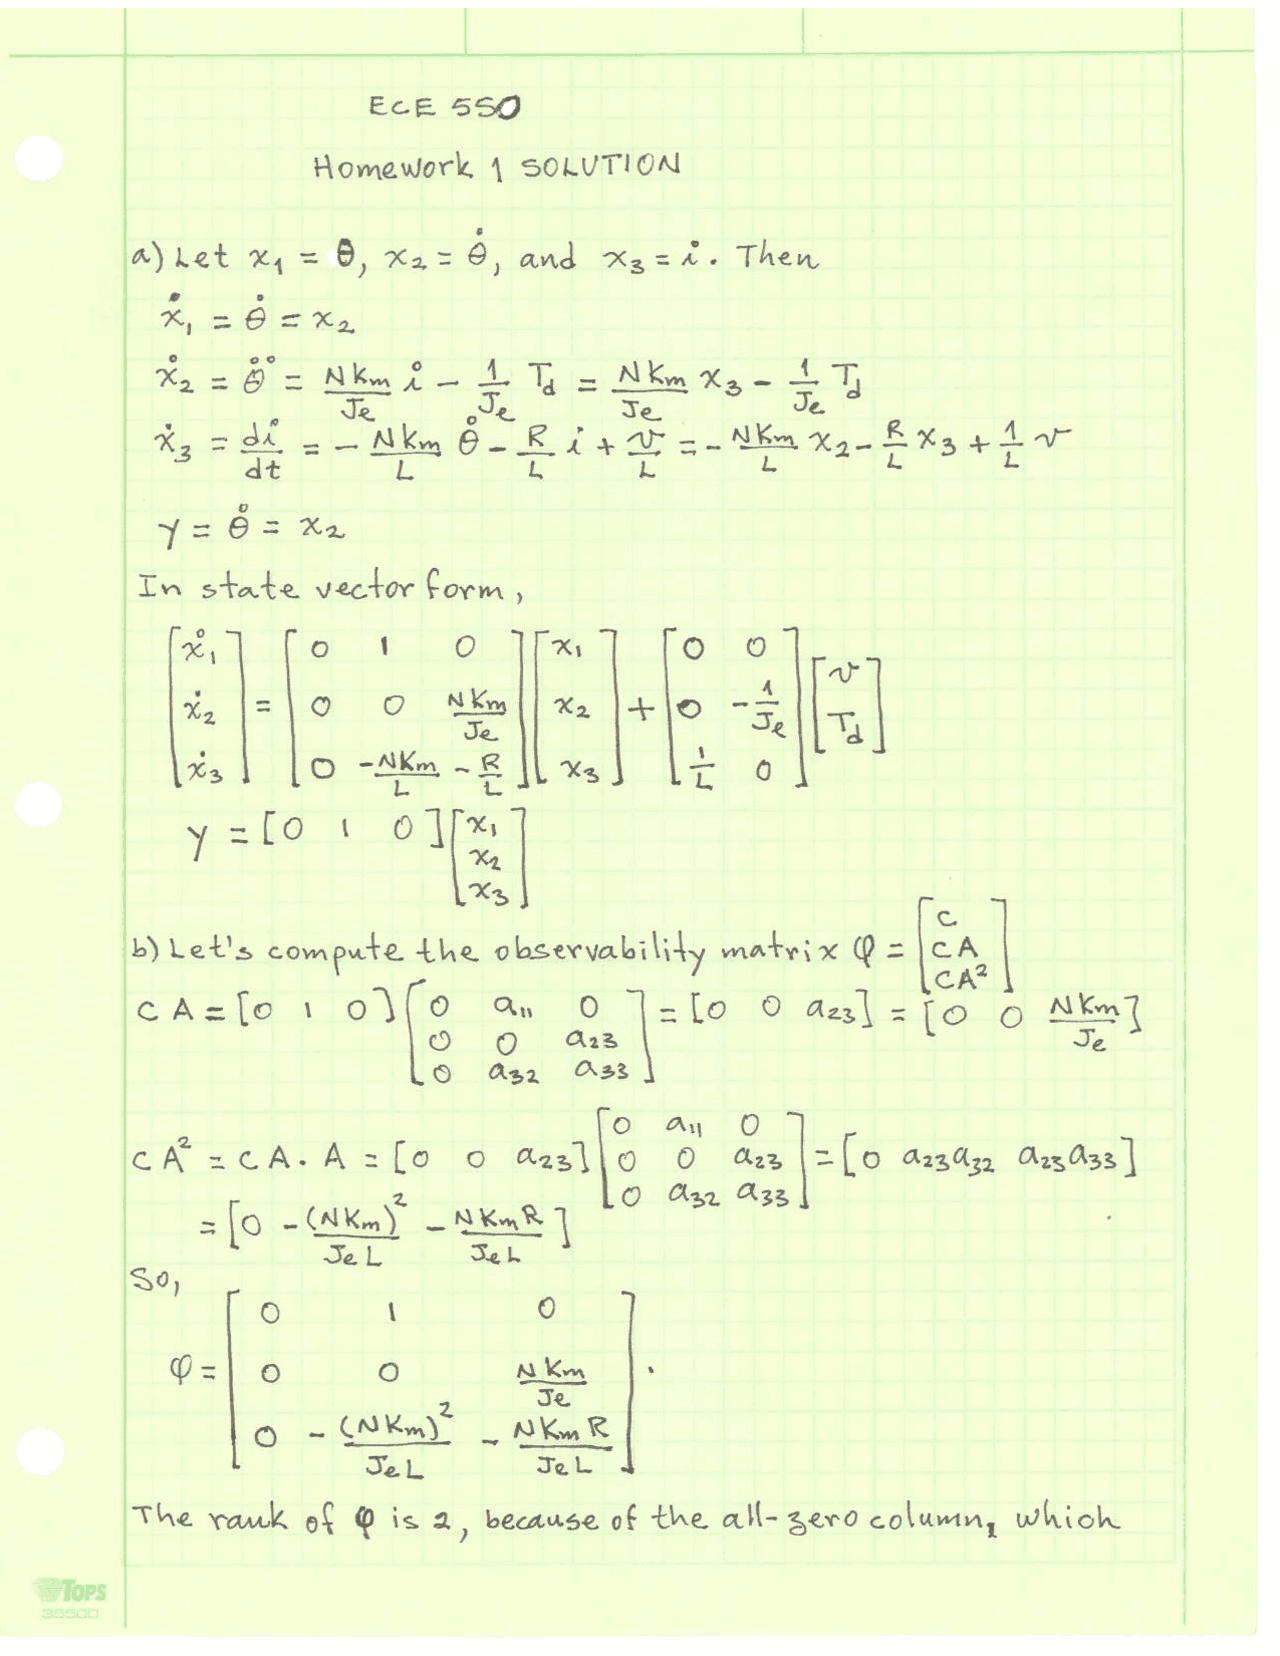 ECE 550
Homework 1 SOLUTION
a) Let x₁ = θ, x₂ = θ̇, and x₃ = i. Then
ẋ₁ = θ̇ = x₂
ẋ₂ = θ̈ = NKm/Je i − 1/Je Td = NKm/Je x₃ − 1/Je Td
ẋ₃ = di/dt = − NKm/L θ̇ − R/L i + v/L = − NKm/L x₂ − R/L x₃ + 1/L v
y = θ̇ = x₂
In state vector form,
[ẋ₁; ẋ₂; ẋ₃] = [0 1 0; 0 0 NKm/Je; 0 −NKm/L −R/L] [x₁; x₂; x₃] + [0 0; 0 −1/Je; 1/L 0] [v; Td]
y = [0 1 0] [x₁; x₂; x₃]
b) Let's compute the observability matrix φ = [C; CA; CA²]
CA = [0 1 0] [0 a₁₁ 0; 0 0 a₂₃; 0 a₃₂ a₃₃] = [0 0 a₂₃] = [0 0 NKm/Je]
CA² = CA.A = [0 0 a₂₃] [0 a₁₁ 0; 0 0 a₂₃; 0 a₃₂ a₃₃] = [0 a₂₃a₃₂ a₂₃a₃₃]
= [0 −(NKm)²/JeL −NKmR/JeL]
So,
φ = [0 1 0; 0 0 NKm/Je; 0 −(NKm)²/JeL −NKmR/JeL].
The rank of φ is 2, because of the all-zero column, which
TOPS
35500